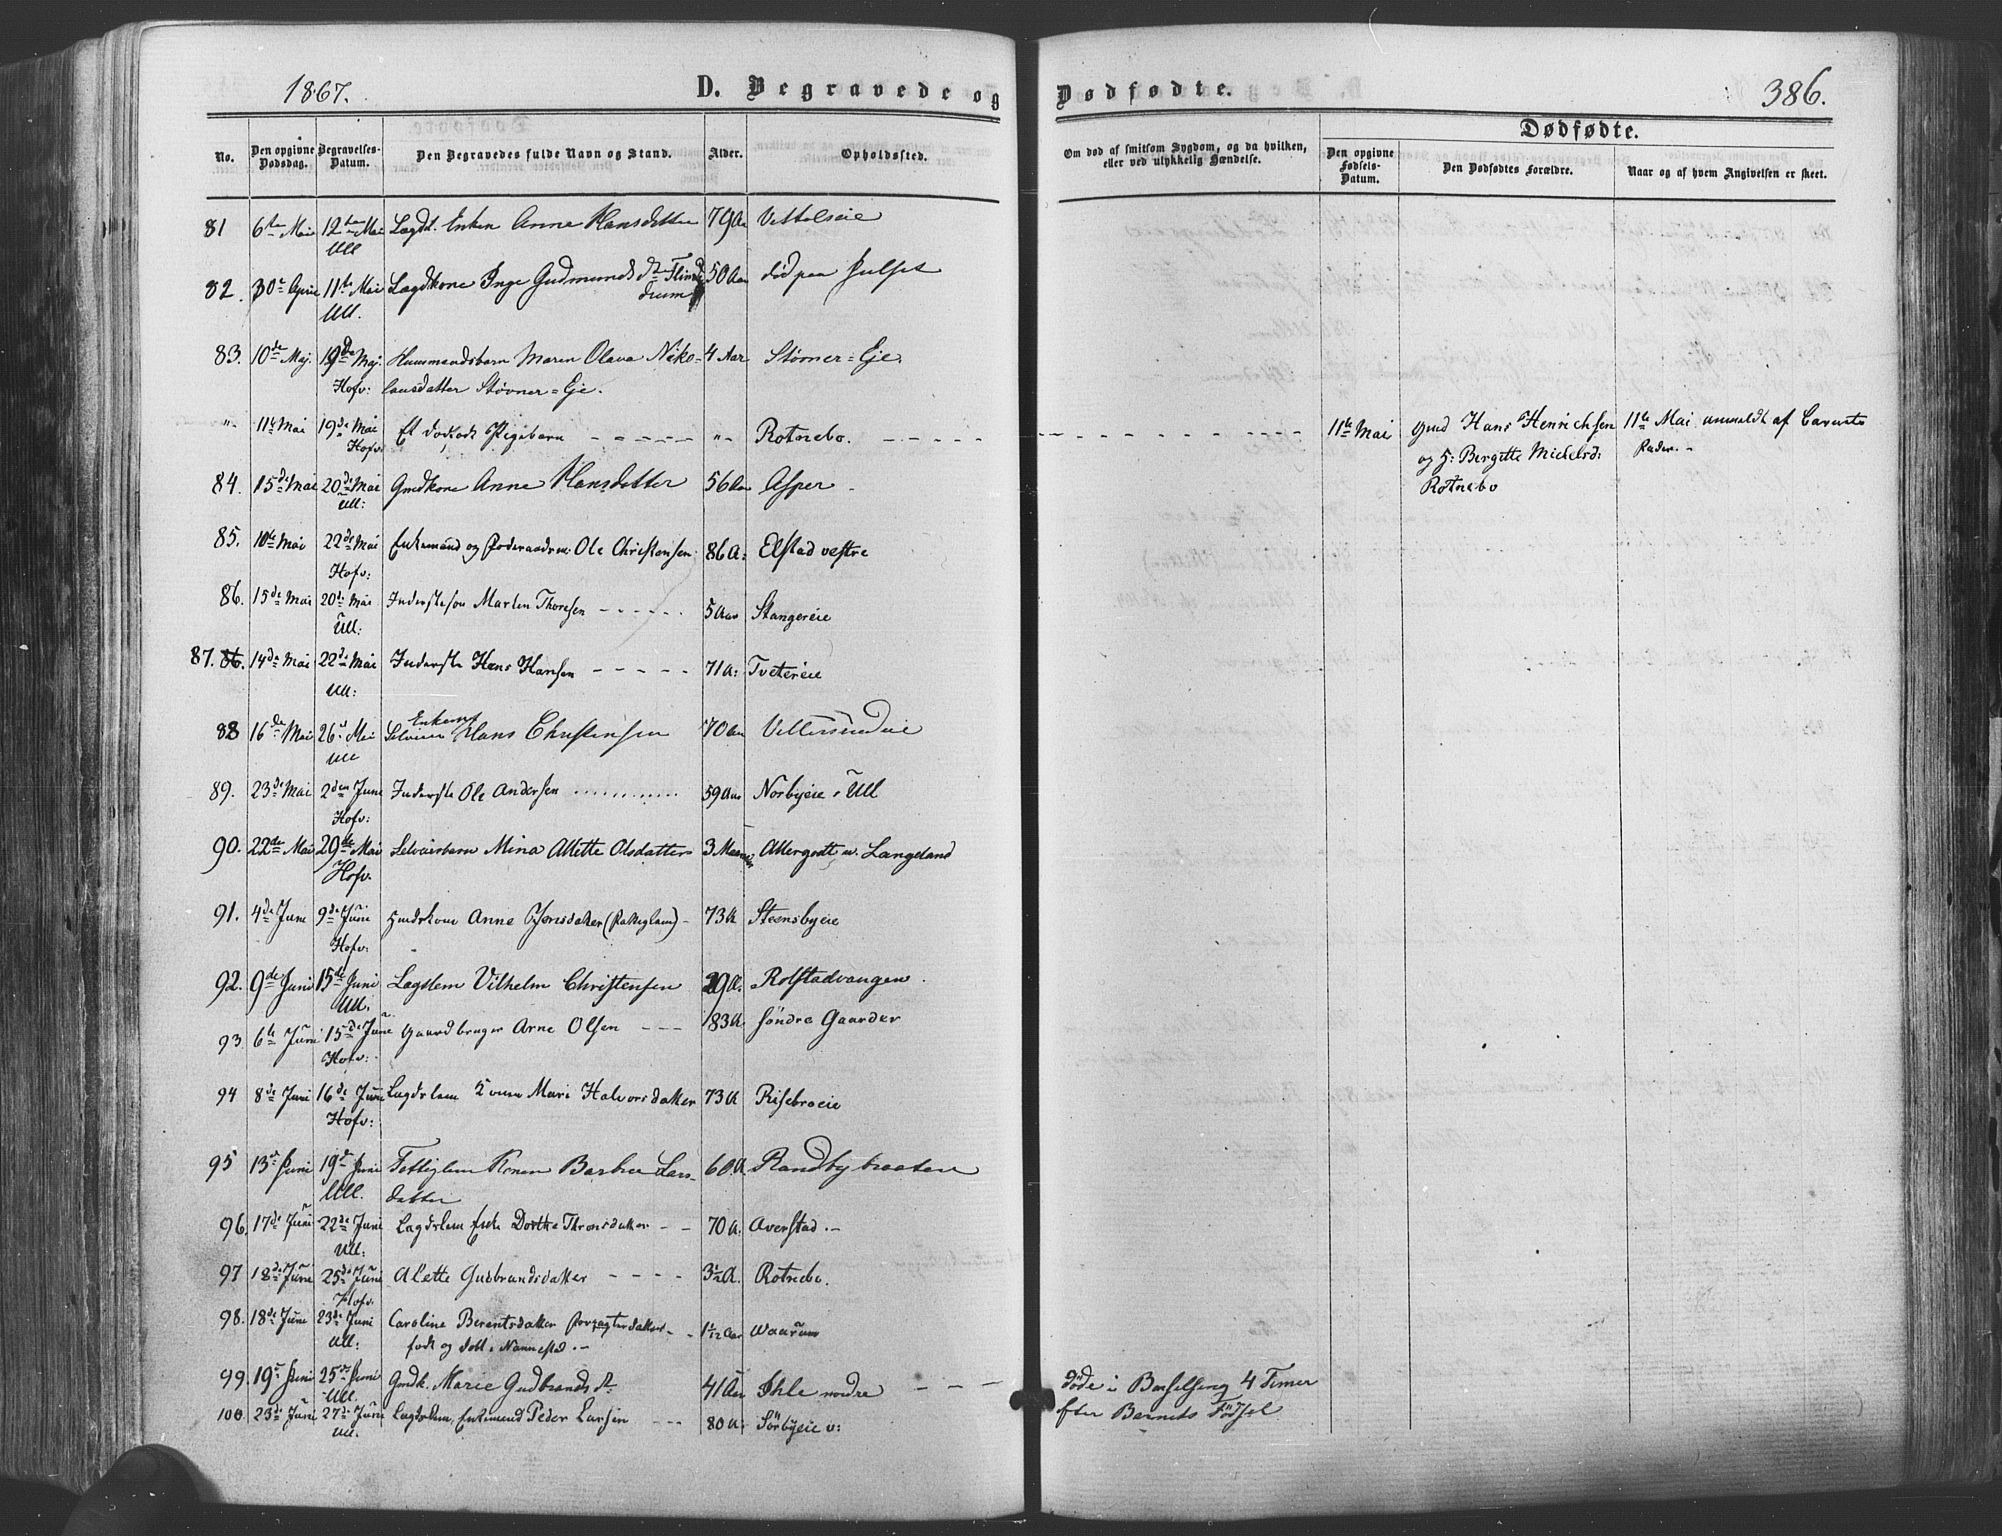 1867.
D. Begravede og Dødfødte.
386.
No.
Den opgivne Dødsdag.
Begravelses-Datum.
Den Begravedes fulde Navn og Stand.
Alder.
Opholdssted.
Om død af smitsom Sygdom, og da hvilken, eller ved ulykkelig Hændelse.
Dødfødte.
Den opgivne Fødsels-Datum.
Den Dødfødtes Forældre.
Naar og af hvem Angivelsen er skeet.
81 6te Mai 12te Mai Lægdsl. Enken Anne Hansdatter 79 Aar
Ull
82. 30te April 11te Mai Lægdkone Inge Gudmundsdt. 50 Aar død paa Julset
Ull.
83. 10de Maj. 19de Maj. Huusmandsbarn Maren Olava Niko- 4 Aar
Hofv: laisdatter Støvner=Eje.
"- 11te Mai 19de Mai Et dødfødt Pigebarn - - - - - "- Rotnebo. - - - - - 11te Mai Gmd Hans Henrichsen 11te Mai anmeldt af Barnets
Hofv: og H: Bergitte Mickelsd: Fader. -
Rotnebo
84. 15de Mai 20de Mai Gmdkone Anne Hansdatter 56 Aar Asper -
Ull:
85. 10de Mai 22de Mai Enkemand og Føderaadsm: Ole Christensen 86 A: Elstad vestre
Hofv:
86. 15de Mai 20de Mai Inderstesøn Marten Thoresen - - - - - 5 Aar Stangereie
Ull:
87. 86. 14de Mai 22de Mai Inderste Hans Hansen - - - - - 71 A: Tvetereie
Ull:
88 16de Mai 26 Mai Selveier Enkem Hans Christensen 70 Aar
Ull
89. 23de Mai 2den Juni Inderste Ole Andersen 59 Aar Norbyeie i Ull
Hofv:
90. 22de Mai 29de Mai Selveierbarn Mina Alette Olsdatter 3 Maaneder Allergodt v. Langeland
Hofv.
91. 4de Juni 9de Juni Anne 73 A Steensbyeie
Hofv:
92. 9de Juni 15de Juni Lægdslem Vilhelm Christensen 29 A. Rolstadvangen.
Ull.
93. 6te Juni 15de Juni Gaardbruger Arne Olsen - - - 83 A. søndre Gaarder
Hofv:
94 8de Juni 16de Juni Lægdslem Mari Halvorsdatter 73 A Risebroeie
Hofv:
95 13de Juni 19de Juni Fattiglem Konen Barbra Lars- 60 A Randbybraaten
Ull. datter
96. 17de Juni 22de Juni Lægdslem Enke Dorthe Thronsdatter - - 70 A: Averstad. -
Ull:
97 18de Juni 25de Juni Alette Gudbrandsdatter - - - - 3½ A. Rotnebo.
Hofv.
98. 18de Juni 23de Juni Caroline Berentsdatter Forpagterdatter - - 1 1/12 Aar Waarum
Ull: født og døbt i Nannestad. -
99. 19de Juni 25de Juni Gmdk. Marie Gudbrandsdt. 41 Aar Ihle nordre - - - døde i Barselseng 4 Timer
Ull. efter Barnets Fødsel.
100. 23de Juni 27de Juni Lægdslem, Enkemand Peder Larsen - - - 80 A. Sörbyeie v:
Ull.